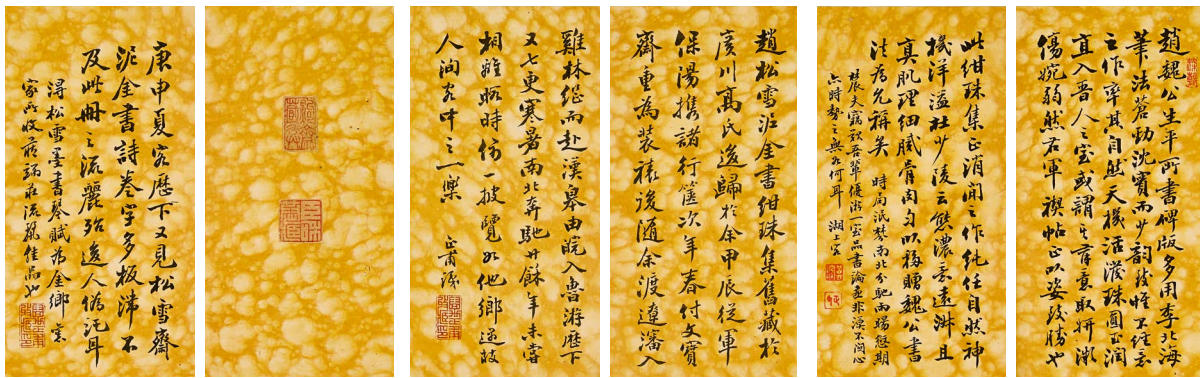 趙魏公生平所書碑版多用李北海
筆法蒼勁沈實而少韻致惟不經意
之作率其自然天機活潑珠圓玉潤
直入晉人之室或謂其有意取妍漸
傷婉弱然右軍禊帖正以姿致勝也
此紺珠集正消閒之作純任自然神
機洋溢杜少陵云態濃意遠淋且
真肌理細膩骨肉勻以移贈魏公書
法為允稱矣 時局泯棼南北分馳雨暘愆期
麓夫竊歎吾輩優游一室品書論畫非漠不關心
六時勢之無如何耳 湖上客
趙松雪泥金書紺珠集舊藏於
廣川高氏後歸於余甲辰從軍
保陽攜諸行篋次年春付文寶
齋重為裝裱後隨余渡遼瀋入
雞林繼而赴溪皋由皖入魯游歷下
又七更寒暑南北奔馳廿餘年未嘗
相離暇時仿一披覽如他鄉遇故
人洵客中之一樂
正甫識
庚申夏客歷下又見松雪齋
泥金書詩卷字多板滯不
及此冊之流麗殆後人偽託耳
潯松雪墨書琴賦為金鄉
家所收蒼勁流麗佳品也